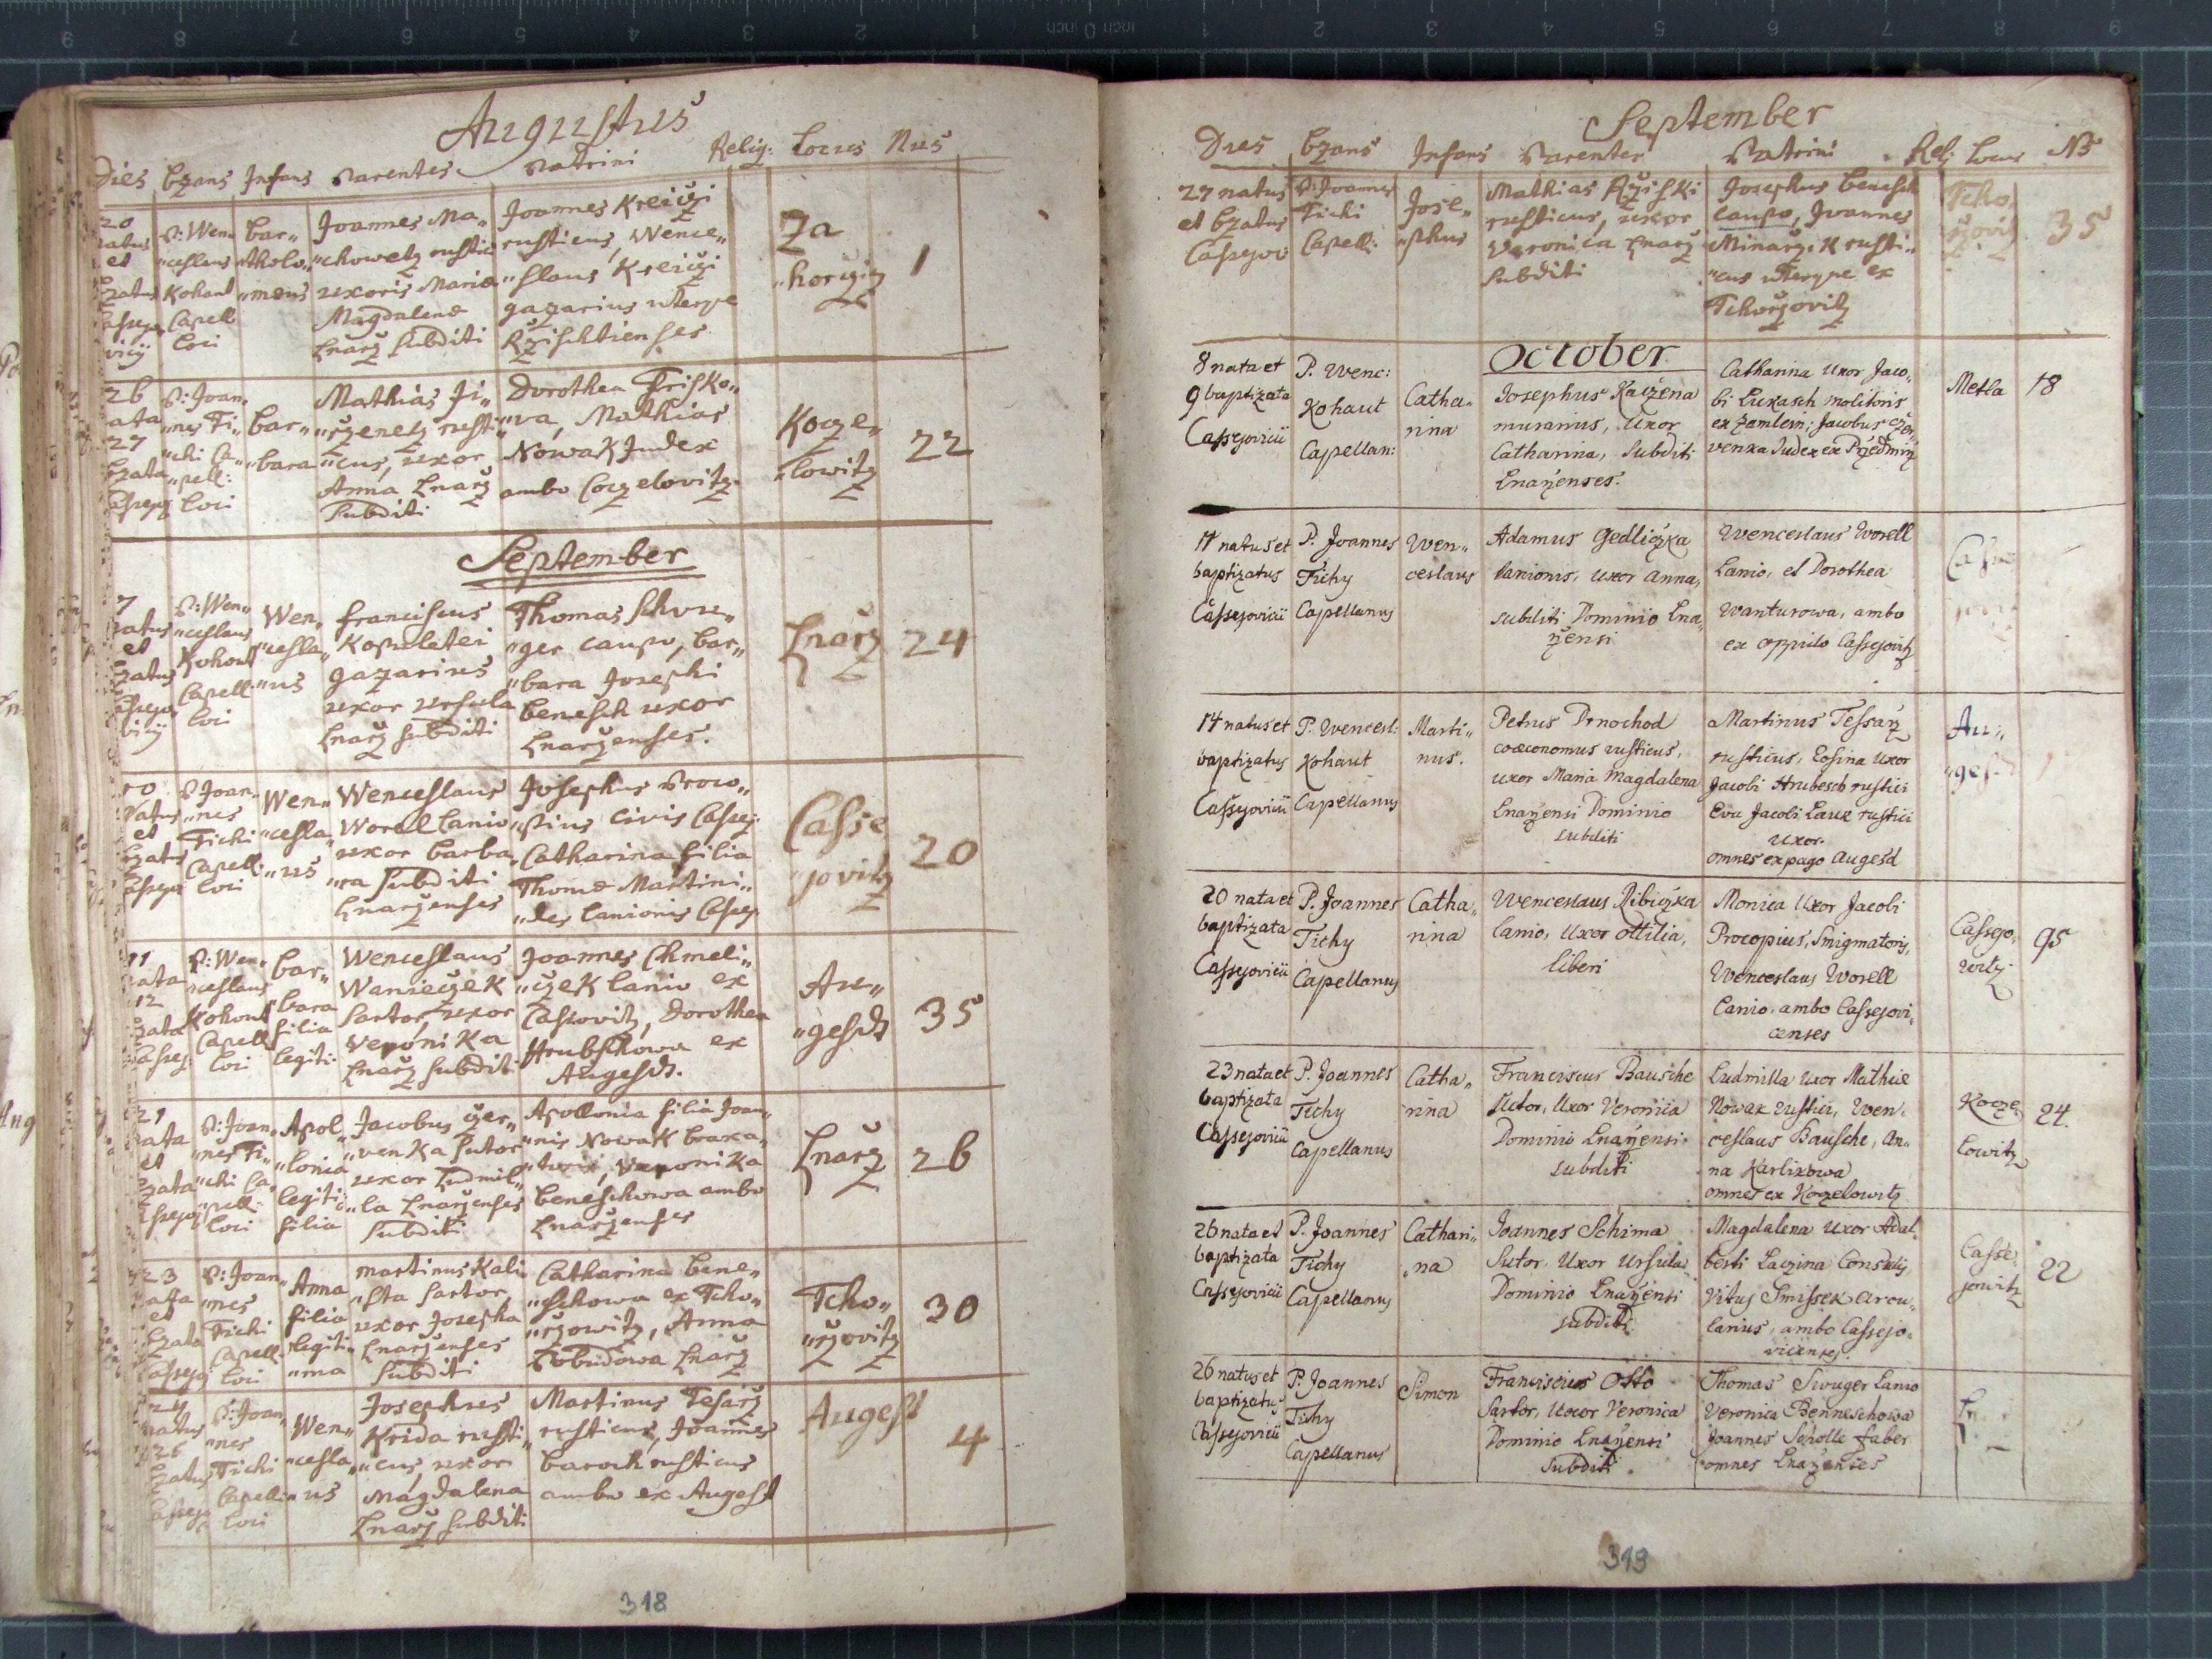 Augustus
Dies bzans Infans Parentes Patrini Relig: Locus Nrus
20
natus
et
bzatus
Cassejo„
vicij
P: Wen„
„ceslaus
Kohaut
Capell
loci
bar„
„tholo„
„mæus
Joannes Ma„
„chowetz rustic
uxoris Mariæ
Magdalenæ
Lnarz subditi
Joannes Kreiczi
rusticus, Wence„
„slaus Kreiczi
gazarius uterque
Rzischtienses
Za
„horzicz
1
26
nata
27
bzata
Cassejo
P: Joan„
„nes Ti„
„chi Ca„
„pell:
loci
bar„
„bara
Mathias Ji„
„rzenetz rusti„
„cus, uxor
Anna Lnarz
subditi
Dorothea Frisko„
„va, Mathias
Nowak Judex
ambo Coczelovitz.
Kocze„
„lowitz
22
September
7
natus
et
bzatus
Cassejo„
vicij
P: Wen„
„ceslaus
Kohaut
Capell:
loci
Wen„
„cesla„
„us
franciscus
Kopuletei
gazarius
uxor Ursula
Lnarz subditi
Thomas Schvu„
„ger caupo, bar„
„bara Josephi
benesch uxor
Lnarzenses.
Lnarz
24
10
natus
et
bzatus
Cassejo
P Joan„
„nes
Tichi
Capell:
loci
Wen„
„cesla„
„us
Wenceslaus
Worell lanio
uxor barba„
„ra subditi
Lnarzenses
Josephus Proco„
„pius civis Cassej:
Catharina filia
Thomæ Martini„
„des lanionis Cassej
Casse
„jovitz
20
11
nata
12
bzata
Cassej:
P: Wen„
„ceslaus
Kohaut
Capell
loci
bar„
bara
filia
legiti:
Wenceslaus
Wanieczek
Sartor, uxor
Veronika
Lnarz subdit.
Joannes Chmeli„
„czek lanio ex
Cassovitz, Dorothea
Hrubschowa ex
Augesdt.
Au„
„gesdt
35
21
nata
et
bzata
Cassejo
P: Joan„
„nes Ti„
„chi Ca„
„pell:
loci
Apol„
„lonia
legiti:
filia
Jacobus czer„
„venka sutor
uxor Ludmil„
„la Lnarzenses
subditi
Apollonia filia Joan„
„nis Nowak braxa„
„toris, Veronika
beneschowa ambo
Lnarzenses
Lnarz
26
23
nata
et
bzata
Cassejo
P: Joan„
„nes
Tichi
Capell:
loci
Anna
filia
legiti„
„ma
Martinus Kali„
„sta sartor,
uxor Josepha
Lnarzenses
subditi
Catharina bene„
„schowa ex Tcho„
„rzowitz, Anna
Lnarz
Tcho„
„rzovitz
30
natus
26
bzatus
Cassejo
P: Joan„
„nes
Tichi
Capell:
loci
Wen„
„cesla„
„us
Josephus
Krida rusti„
„cus, uxor
Magdalena
Lnarz subditi
Martinus Tesarz
rusticus, Joannes
baroch rusticus
ambo ex Augest
Augest
4
318
September
Dies bzans Infans Parentes Patrini Rel: Locus NB
27 natus
et bzatus
Cassejov:
P: Joannes
Tichi
Capell:
Jose„
„phus
Mathias Rziski
rusticus, uxor
Veronica Lnarz
subditi
Josephus benesch
caupo, Joannes
Minarzik rusti„
„cus uterque ex
Tchorzovitz
Tcho„
rzovitz
35
October
8 nata et
9 baptizata
Cassejovicii
P. Wenc:
Kohaut
Capellan:
Catha„
rina
Josephus Kaczena
murarius, Uxor
Catharina, Subditi
Lnarzenses.
Catharina Uxor Jaco„
bi Lukasch molitoris
ex Zamlein; Jacobus czer„
venka Judex ex Przedmirz
Metla
18
11 natus et
baptizatus
Cassejovicii
P. Joannes
Tichy
Capellanus
Wen„
ceslaus
Adamus Gedliczka
lanionis, uxor Anna,
subditi Dominio Lna„
rzensi
Wenceslaus Worell
Lanio, et Dorothea
Wanturowa, ambo
ex oppido Cassejovitz
14 natus et
baptizatus
Cassejovicii
P. Wencesl:
Kohaut
Capellanus
Marti„
nus.
Petrus Drnochod
coœconomus rusticus,
uxor Maria Magdalena
Lnarzensi Dominio
subditi
Martinus Tessarz
rusticus, Rosina Uxor
Jacobi Hrubesch rustici
Eva Jacobi Laux rustici
uxor.
omnes ex pago Augesd
Au„
„gesd
20 nata et
baptizata
Cassejovicii
P. Joannes
Tichy
Capellanus
Catha„
rina
Wenceslaus Ribiczka
lanio, Uxor Ottilia,
liberi
Monica Uxor Jacobi
Procopius, Smigmatoris,
Wenceslaus Worell
Lanio, ambo Cassejovi„
censes
Cassejo„
witz.
95
23 nata et
baptizata
Cassejovicii
P. Joannes
Tichy
Capellanus
Catha„
rina
Franciscus Bausche
Sutor, Uxor Veronica
Dominio Lnarzensi
subditi
Ludmilla uxor Mathiæ
Nowak rustici, Wen„
ceslaus Bausche, An„
na Karlikowa
omnes ex Koczelowitz
Kocze
lowitz
24.
26 nata et
baptizata
Cassejovicii
P. Joannes
Tichy
Capellanus
Cathari„
na
Joannes Schima
Sutor, Uxor Ursula
Dominio Lnarzensi
subditi
Magdalena Uxor Adal„
berti Laczina Consulis,
Vitus Smissek arcu„
larius, ambo Cassejo„
vicenses.
Casse
jowitz
22
26 natus et
baptizatus
Cassejovicii
P. Joannes
Tichy
Capellanus
Simon
Franciscus Otto
Sartor, Uxor Veronica
Dominio Lnarzensi
Subditi.
Thomas Swuger Lanio
Veronica Benneschowa
Joannes Scholle faber
omnes Lnarzenses
319